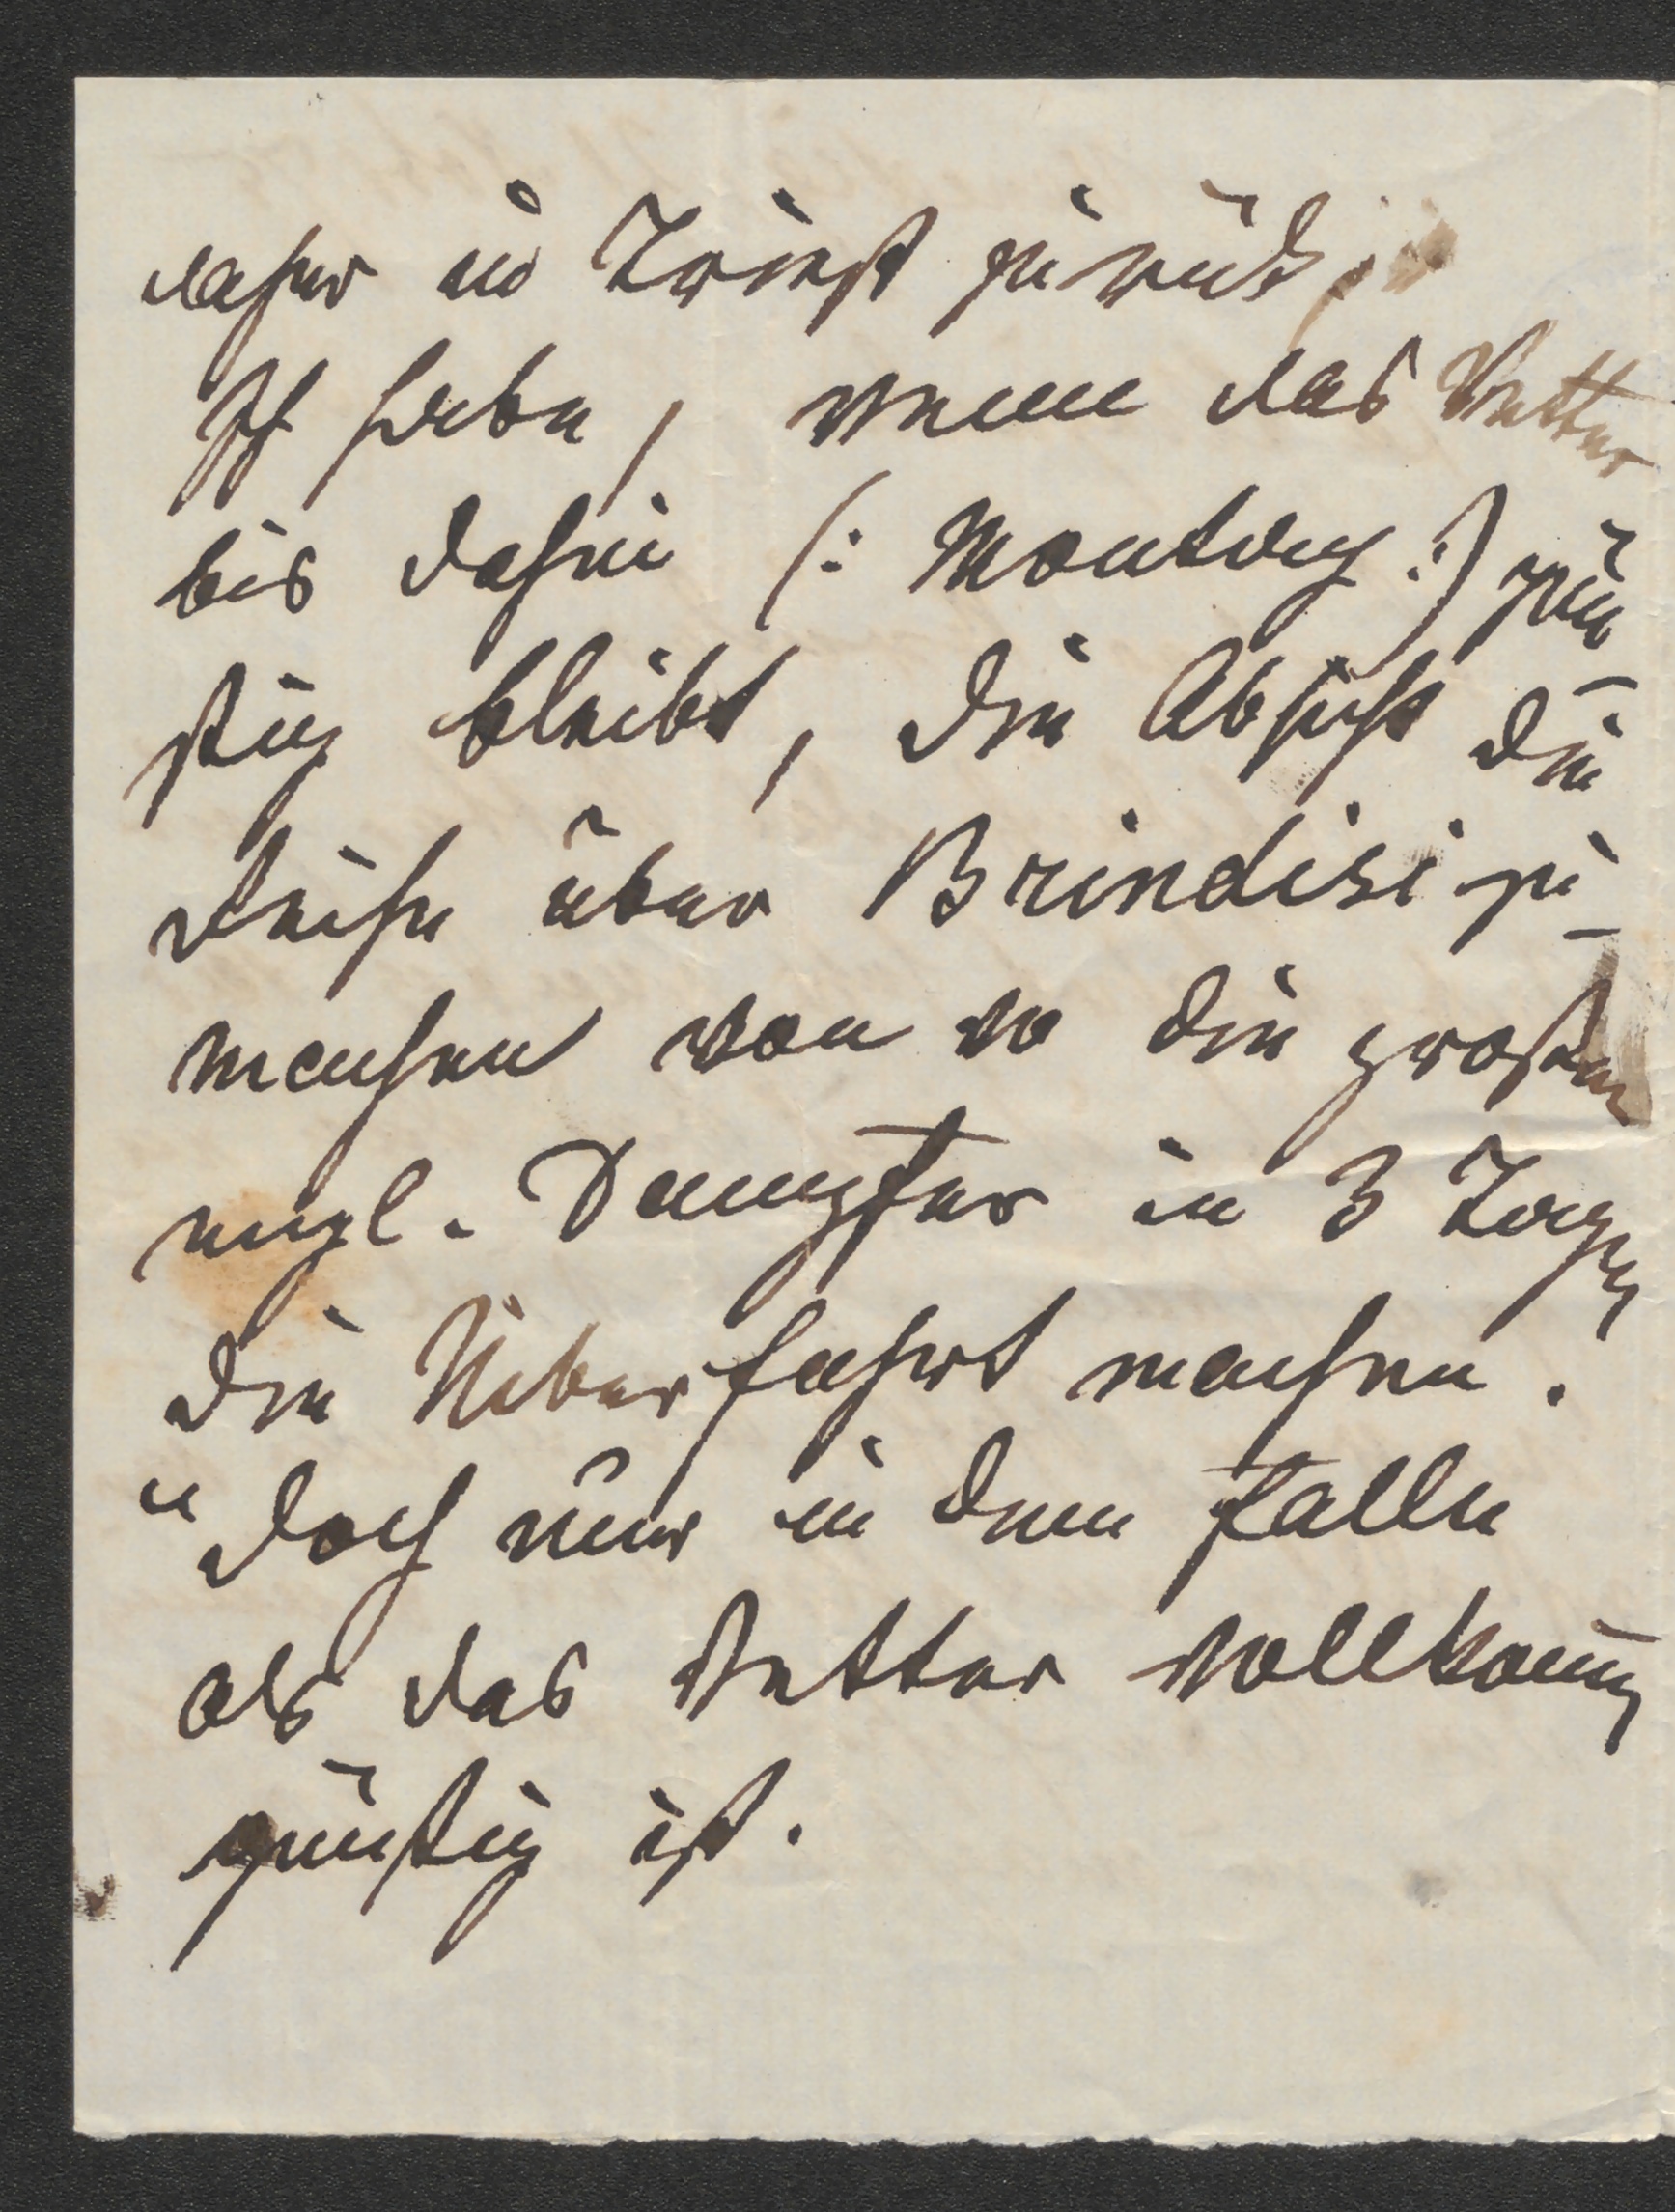 daher in Triest zurück,
Ich habe, wenn das Wetter
bis dahin (: Montag :) gün
stig bleibt, die Absicht die
Reise über Brindisi zu
machen von wo die großen
engl. Dampfer in 3 Tagen
die Überfahrt machen.
"doch nur in dem Falle
als das Wetter vollkom̄en
günstig ist.